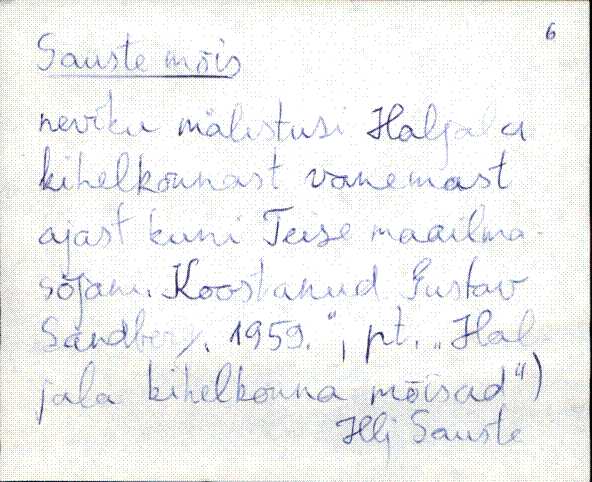 6
Sauste mõis
neviku mälestusi Haljala
kihelkonnast vanemast
ajast kuni Teise maailma-
sõjani. Koostanud Gustav
Sandberg. 1959.", pt. „Hal
jala kihelkonna mõisad")
Hlj Sauste